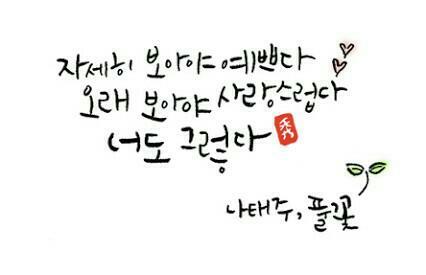 자세히 보아야 예쁘다
오래 보아야 사랑스럽다
너도 그렇다 秀
나태주, 풀꽃